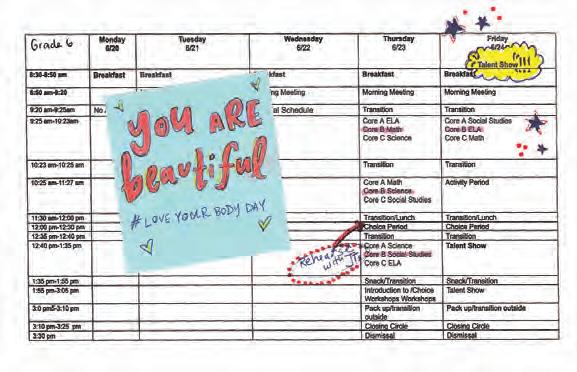 Grade 6 Monday 6/20 Tuesday 6/21 Wednesday 6/22 Thursday 6/23 Friday 6/24
Talent Show!!!!
8:30-8:50 am Breakfast Breakfast kfast Breakfast Breakfast
8:50 am-9:20 ng Meeting Morning Meeting Morning Meeting
9:20 am-9:25am No al Schedule Transition Transition
9:25 am-10:23am Core A ELA Core A Social Studies
Core B Math Core B ELA
Core C Science Core C Math
10:23 am-10:25 am Transition Transition
10:25 am-11:27 am Core A Math Activity Period
Core B Science
Core C Social Studies
11:30 am-12:00 pm Transition/Lunch Transition/Lunch
12:00 pm-12:30 pm Choice Period Choice Period
12:35 pm-12:40 pm Transition Transition
12:40 pm-1:35 pm Core A Science Talent Show
Core B Social Studies
Core C ELA
1:35 pm-1:55 pm Snack/Transition Snack/Transition
1:55 pm-3:05 pm Introduction to /Choice Talent Show
Workshops Workshops
3:0 pm5-3:10 pm Pack up/transition Pack up/transition outside
outside
3:10 pm-3:25 pm Closing Circle Closing Circle
3:30 pm Dismissal Dismissal
YOU ARE
beautiful
#LOVE YOUR BODY DAY
Rehearse
with JT